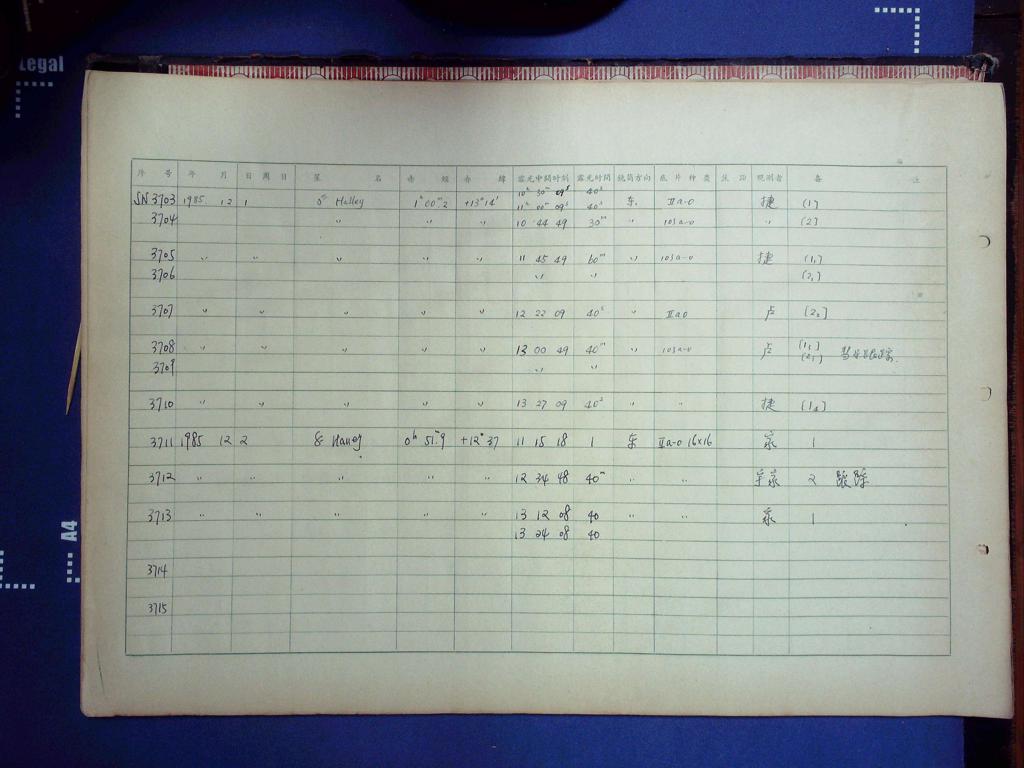 Legal
A4
序 号 年 月 日 周 日 星 名 赤 经 赤 纬 露光中间时刻 露光时间 镜筒方向 底片种类 观测者 备 注
10ʰ 30ᵐ 09ˢ 40ˢ
SN 3703 1985 12 1 Halley 1ʰ 00ᵐ.2 +13°14' 11ʰ 00ᵐ 09ˢ 40ˢ 东 IIa-O 捷 (1)
3704 〃 〃 〃 10 44 49 30ᵐ 〃 103a-O 〃 (2)
3705 〃 〃 〃 〃 〃 11 45 49 60ᵐ 〃 103a-O 捷 (1₂)
3706 〃 〃 (2₂)
3707 〃 〃 〃 〃 〃 12 22 09 40ˢ 〃 IIaO 卢
3708 〃 〃 〃 〃 〃 13 00 49 40ᵐ 〃 103a-O 卢 (1₃)
3709 〃 〃
3710 〃 〃 〃 〃 〃 13 27 09 40ˢ 〃 〃 捷 (1₄)
3711 1985 12 2 Halley 0ʰ 51ᵐ.9 +12°37 11 15 18 1 东 IIa-O 16×16 1
3712 〃 〃 〃 〃 〃 12 34 48 40ᵐ 〃 〃 2 跟踪
3713 〃 〃 〃 〃 〃 13 12 08 40 〃 〃 1
13 24 08 40
3714
3715